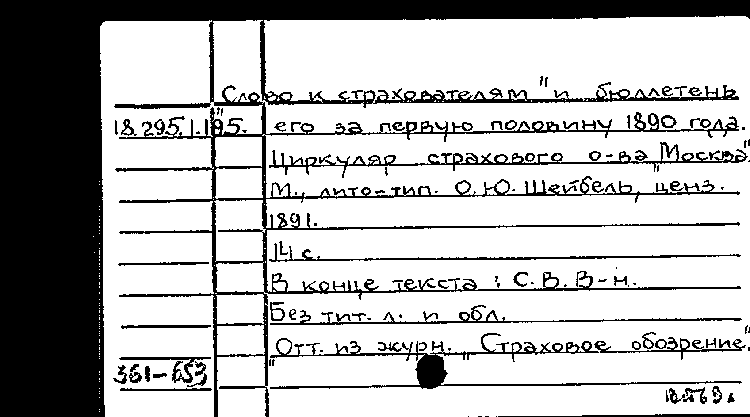 "Слово к страхователям" и бюллетень
18.295.1.195. его за первую половину 1890 года.
Циркуляр страхового о-ва "Москва"
М., лито-тип. О.Ю. Шейбель, ценз.
1891.
14 с.
В конце текста: С.В.В-н.
Без тит. л. и обл.
Отт. из журн. "Страховое обозрение"
361-653